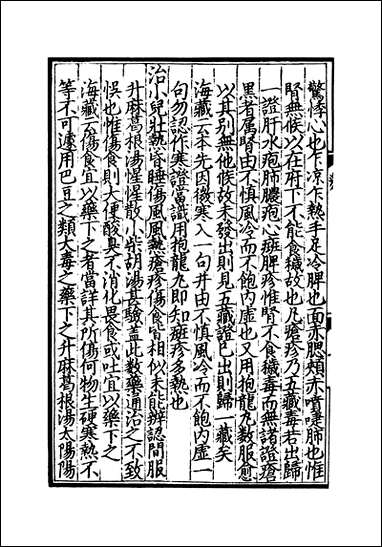 驚悸心也乍凉乍熱手足冷脾也面赤腮頰赤噴嚏肺也惟
腎無候以在府下不能食穢故也凡瘡疹乃五藏毒若出歸
一證肝水疱肺膿疱心癍脾疹惟腎不食穢毒而無諸證瘡
黑者属腎由不慎風冷而不飽内虚也又用抱龍丸數服愈
以其别無他候故未發出則見五藏證已出則歸一藏矣
海藏云本先因微寒入一句并由不慎風冷而不飽内虚一
句勿認作寒證當識用抱龍丸即知癍疹多熱也
治小兒壯熱昏睡傷風風熱瘡疹傷食皆相似未能辨認間服
升麻葛根湯惺惺散小柴胡湯甚驗蓋此數藥通治之不致
悞也惟傷食則大便酸臭不消化畏食或吐宜以藥下之
海藏云傷食宜以藥下之者當詳其所傷何物生硬寒熱不
等不可遽用巴豆之類大毒之藥下之升麻葛根湯太陽陽